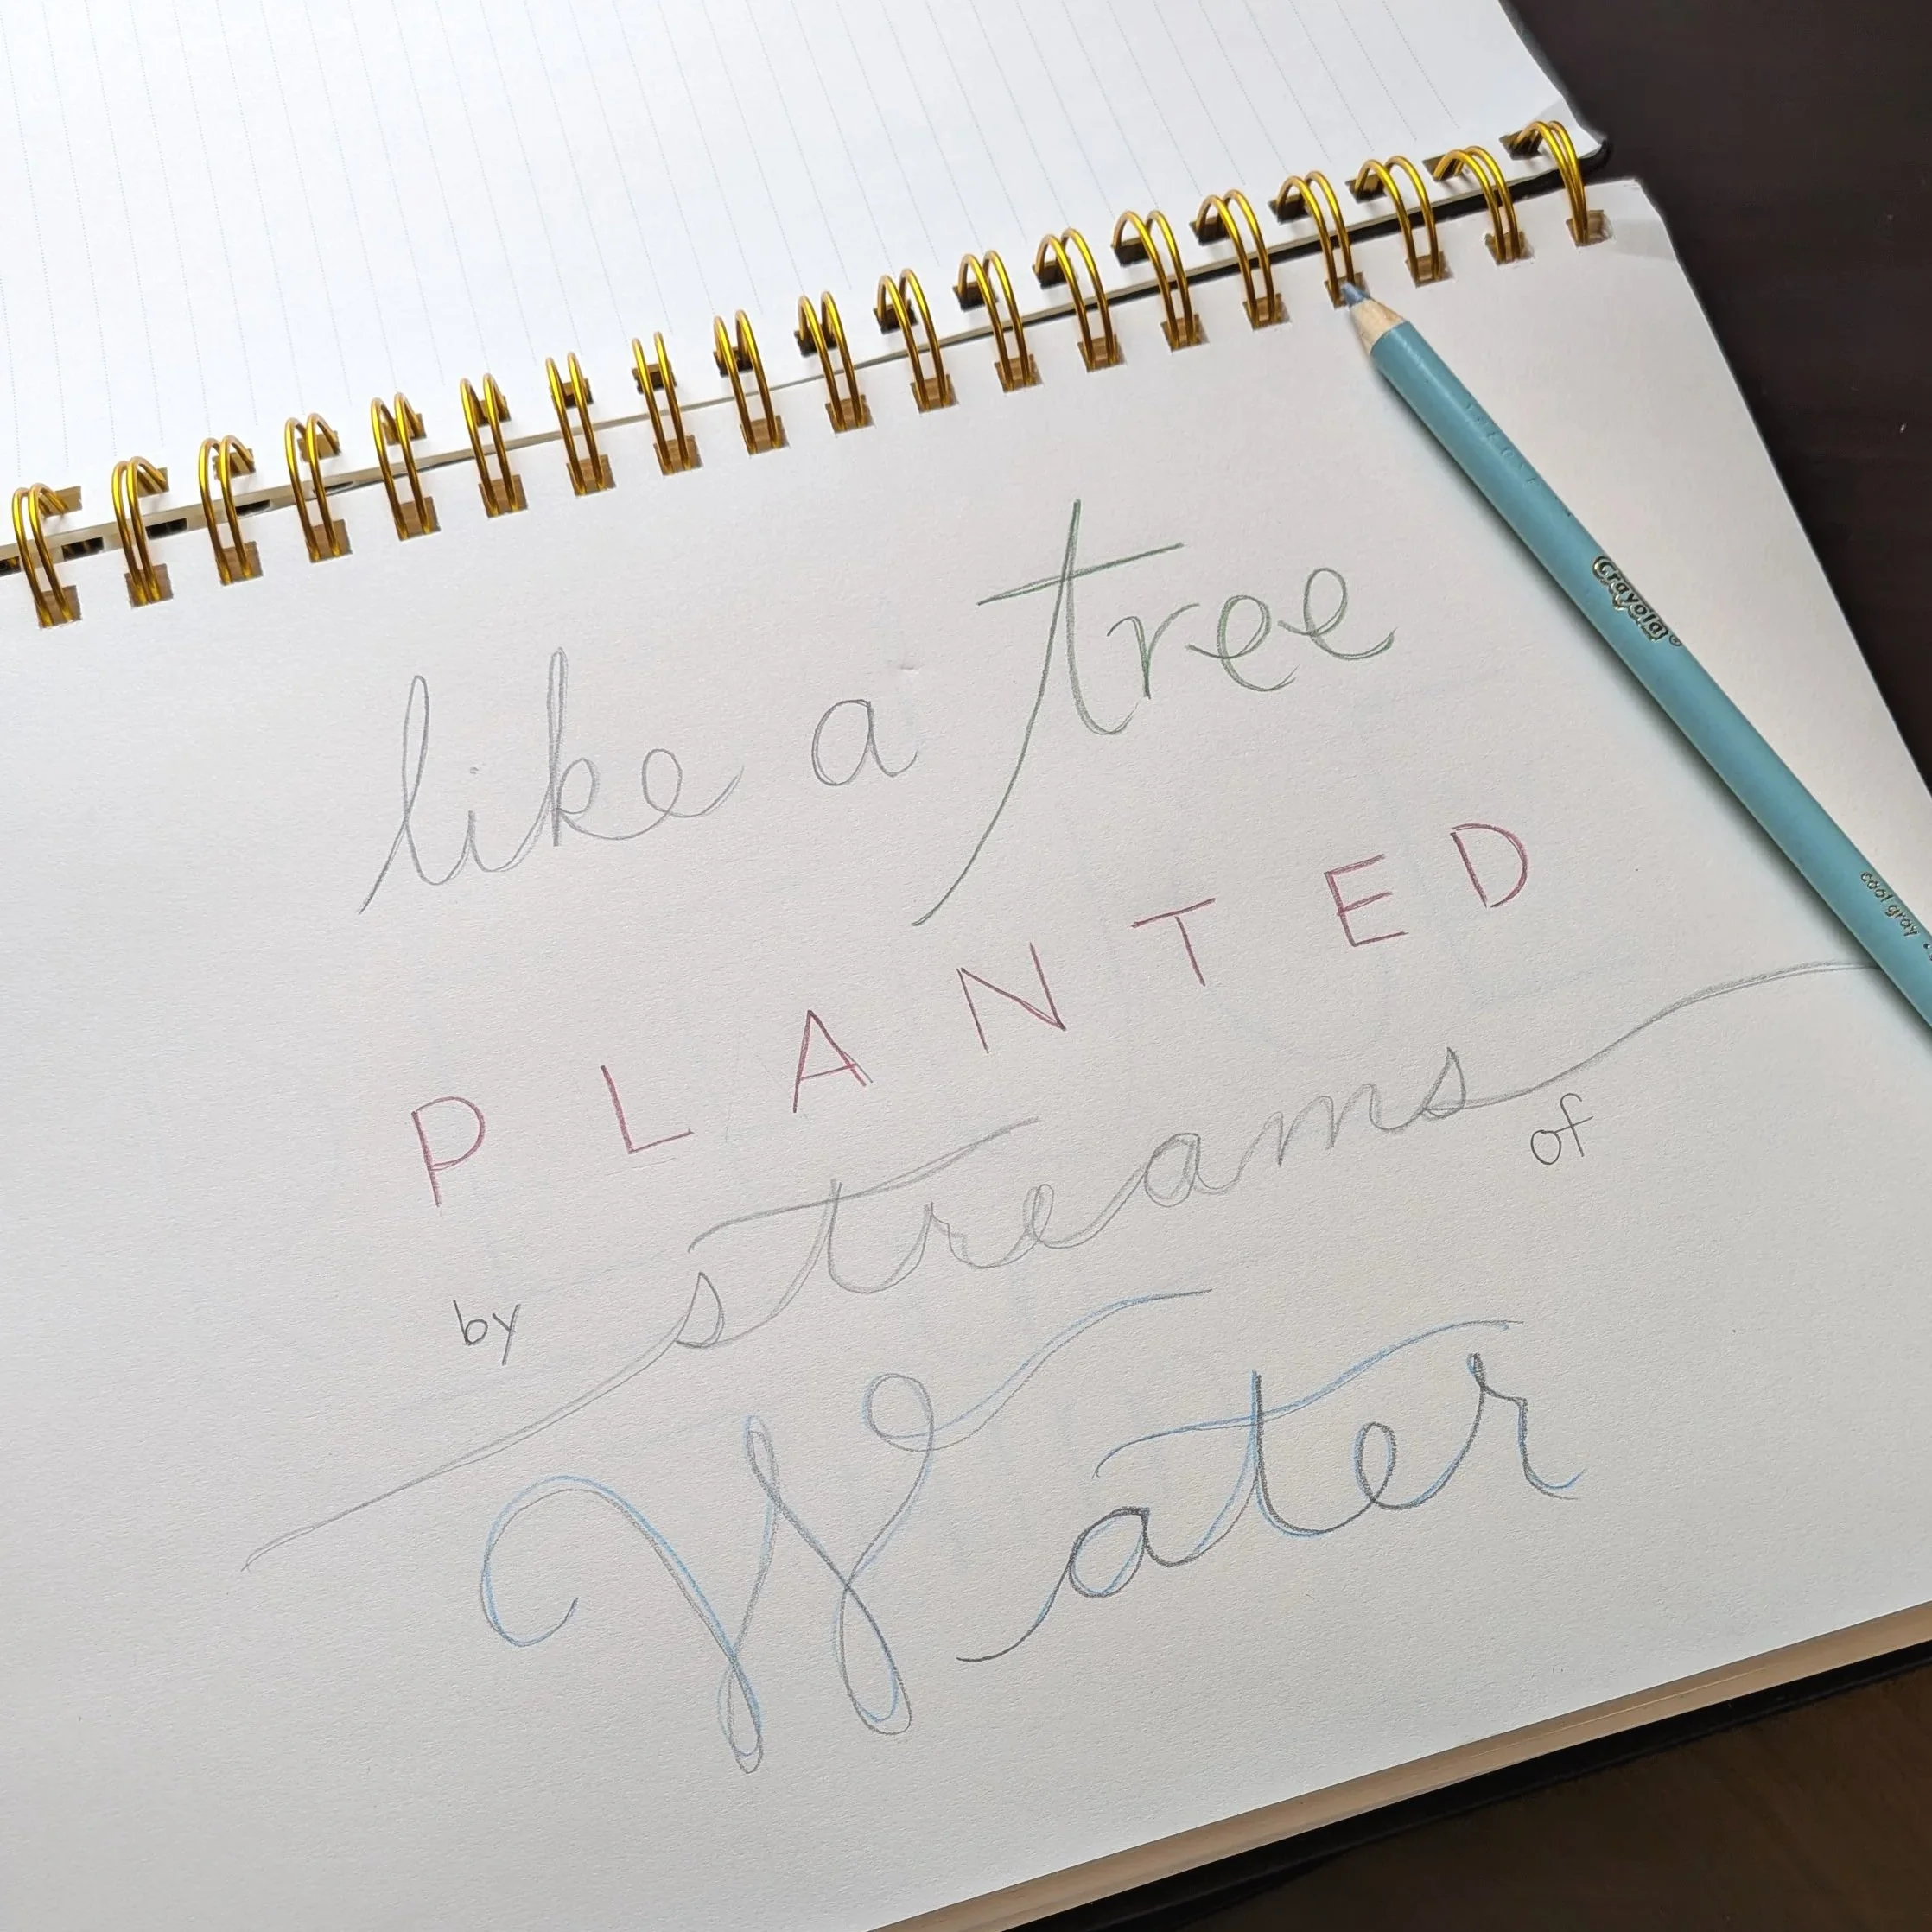 like a tree
PLANTED
by streams of
Water
Crayola
cool gray